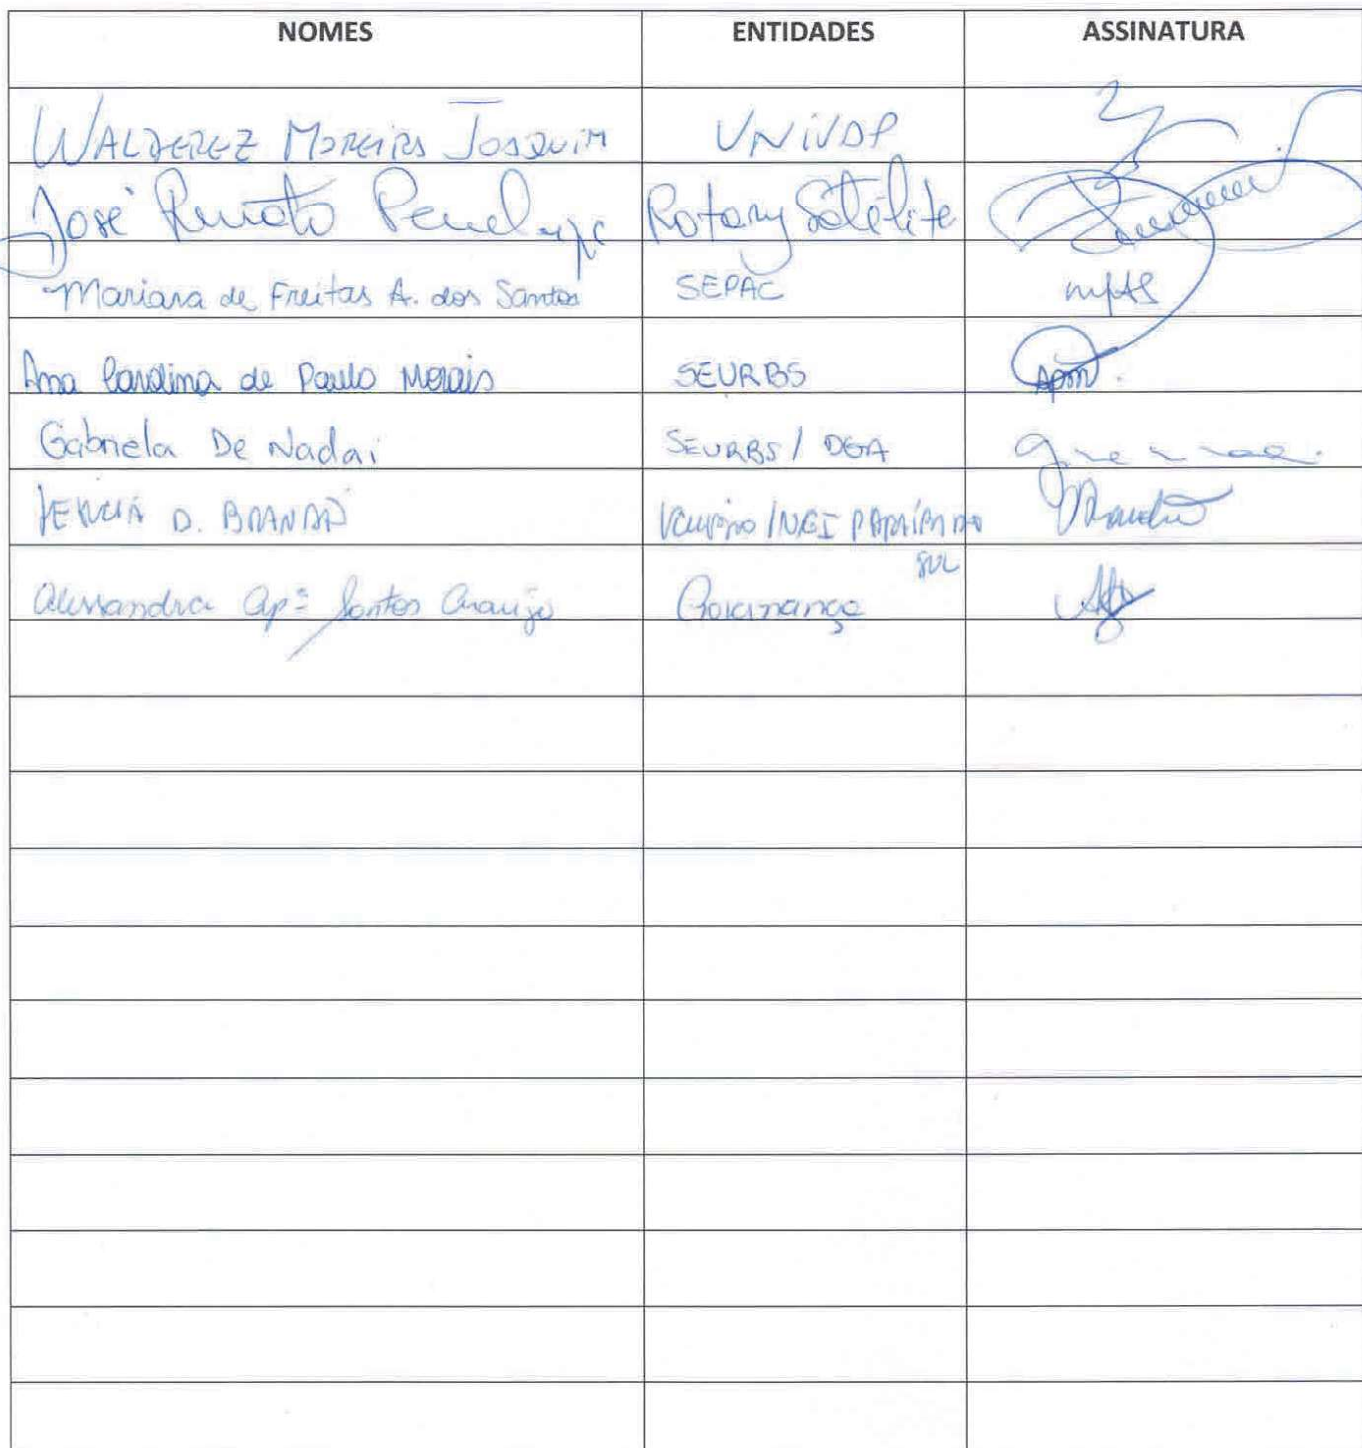 NOMES ENTIDADES ASSINATURA
WALDEREZ MOREIRA JOAQUIM UNIVAP
José Renato Rotary Satélite
Mariana de Freitas A. dos Santos SEPAC mfAS
Ana Carolina de Paulo Morais SEURBS Apm.
Gabriela De Nadai SEURBS / DGA
D. BRANDÃO
SUL
Alessandra Apª Santos Araujo Governança